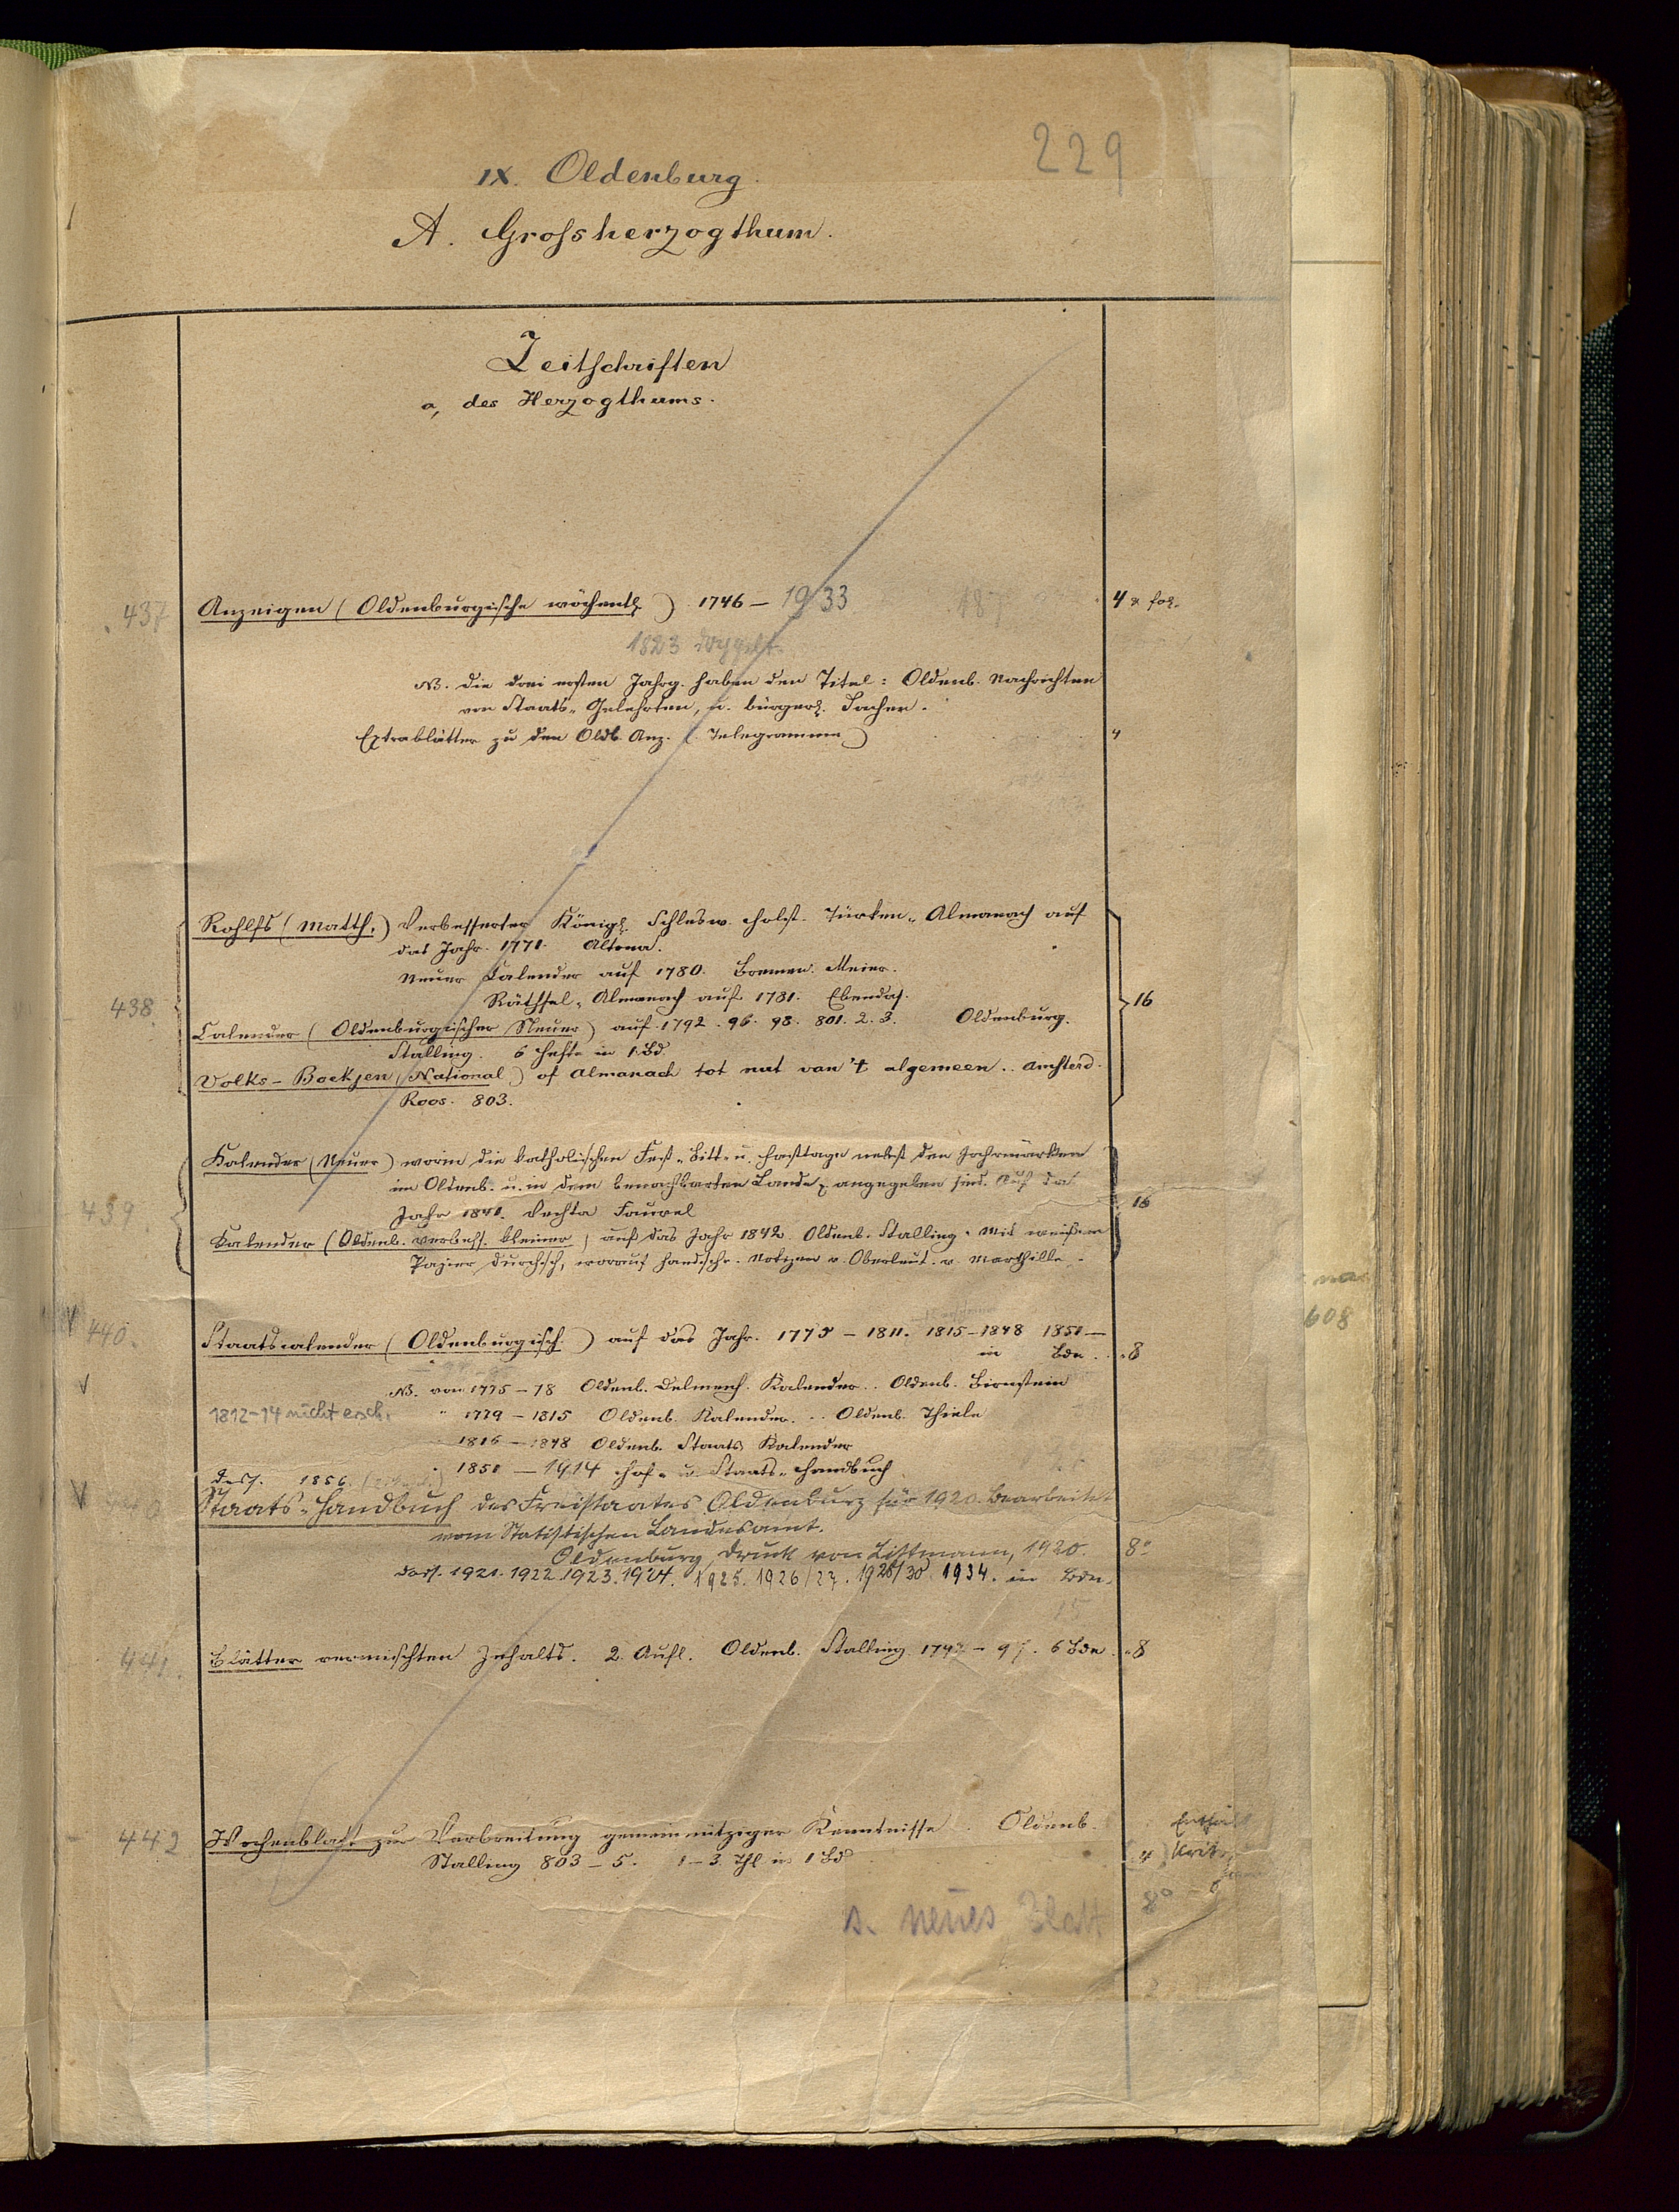 229
IX. Oldenburg.
A. Grossherzogthum.
Zeitschriften
a, des Herzogthums.
437 Anzeigen (Oldenburgische wöchentl.) 1746 – 1933 4 & fol.
1823 doppelt
NB. die drei ersten Jahrg. haben den Titel: Oldenb. Nachrichten
von Staats-, Gelehrten, u. bürgerl. Sachen.
Extrablätter zu den Oldb. Anz. (Telegramme) 4
Rohlfs (Matth.) Verbesserter Königl. Schlesw. Holst. Türken-Almanach auf
das Jahr 1771. Altona.
Neuer Calender auf 1780. Bremen. Meier.
Räthsel-Almanach auf 1781. Ebendas.
438 16
Calender (Oldenburgischer Neuer) auf 1792. 96. 98. 801. 2. 3. Oldenburg.
Stalling. 6 Hefte in 1 Bd.
Volks-Boekjen (National) of Almanach tot nut van 't algemeen.. Amsterd.
Roos. 803.
Kalender (Neuer) worin die katholischen Fest- Bitt- u. Fasttage nebst den Jahrmärkten
im Oldenb. u. in dem benachbarten Lande angegeben sind. Auf das
439. Jahr 1841. Vechta Fauvel 16
Kalender (Oldenb. verbess. kleiner) auf das Jahr 1842 Oldenb. Stalling. Mit weißem
Papier durchsch, worauf handschr. Notizen v. Oberleut. v.
440. Staatscalender (Oldenburgisch.) auf das Jahr. 1775 – 1811. 1815–1848 1851 —
in Bdn. 8
NB. von 1775 – 78 Oldenb. Delmenh. Kalender.. Oldenb.
1812–14 nicht ersch. " 1779 – 1815 Oldenb. Kalender. .. Oldenb. Thiele
1816 – 1848 Oldenb. Staats Kalender
" 1851 — 1914 Hof- u. Staats-Handbuch
dass. 1856.
Staats-Handbuch des Freistaates Oldenburg für 1920. Bearbeitet
vom Statistischen Landesamt.
Oldenburg, Druck von Littmann, 1920. 8°
dass. 1921. 1922. 1923. 1924. 1925. 1926/27. 1928/30 1934. in Bdn.
15
441. Blätter vermischten Inhalts. 2. Aufl. Oldenb. Stalling. 1792 – 97. 6 Bde. 8
442 Wochenblatt zur Verbreitung gemeinnütziger Kenntnisse. Oldenb.
Stalling 803 – 5. 1–3 Thl in 1 Bd 4
8°
s. neues Blatt
608